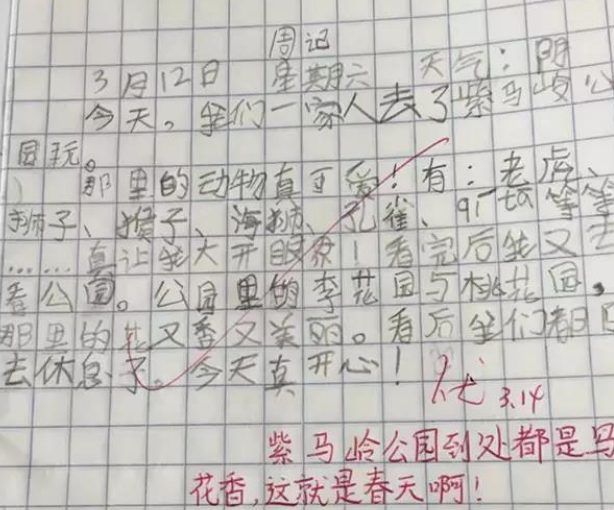 周记
3月12日 星期六 天气：阴
今天。我们一家人去了紫马岭公
园玩。
那里的动物真可爱！有：老虎、
狮子、猴子、海狮、孔雀、等等
……真让我大开眼界！看完后我又去
看公园。公园里的李花园与桃花园。
那里的花又香又美丽。看后我们都回
去休息了。今天真开心！
优 3.14
紫马岭公园到处都是鸟
花香，这就是春天啊！